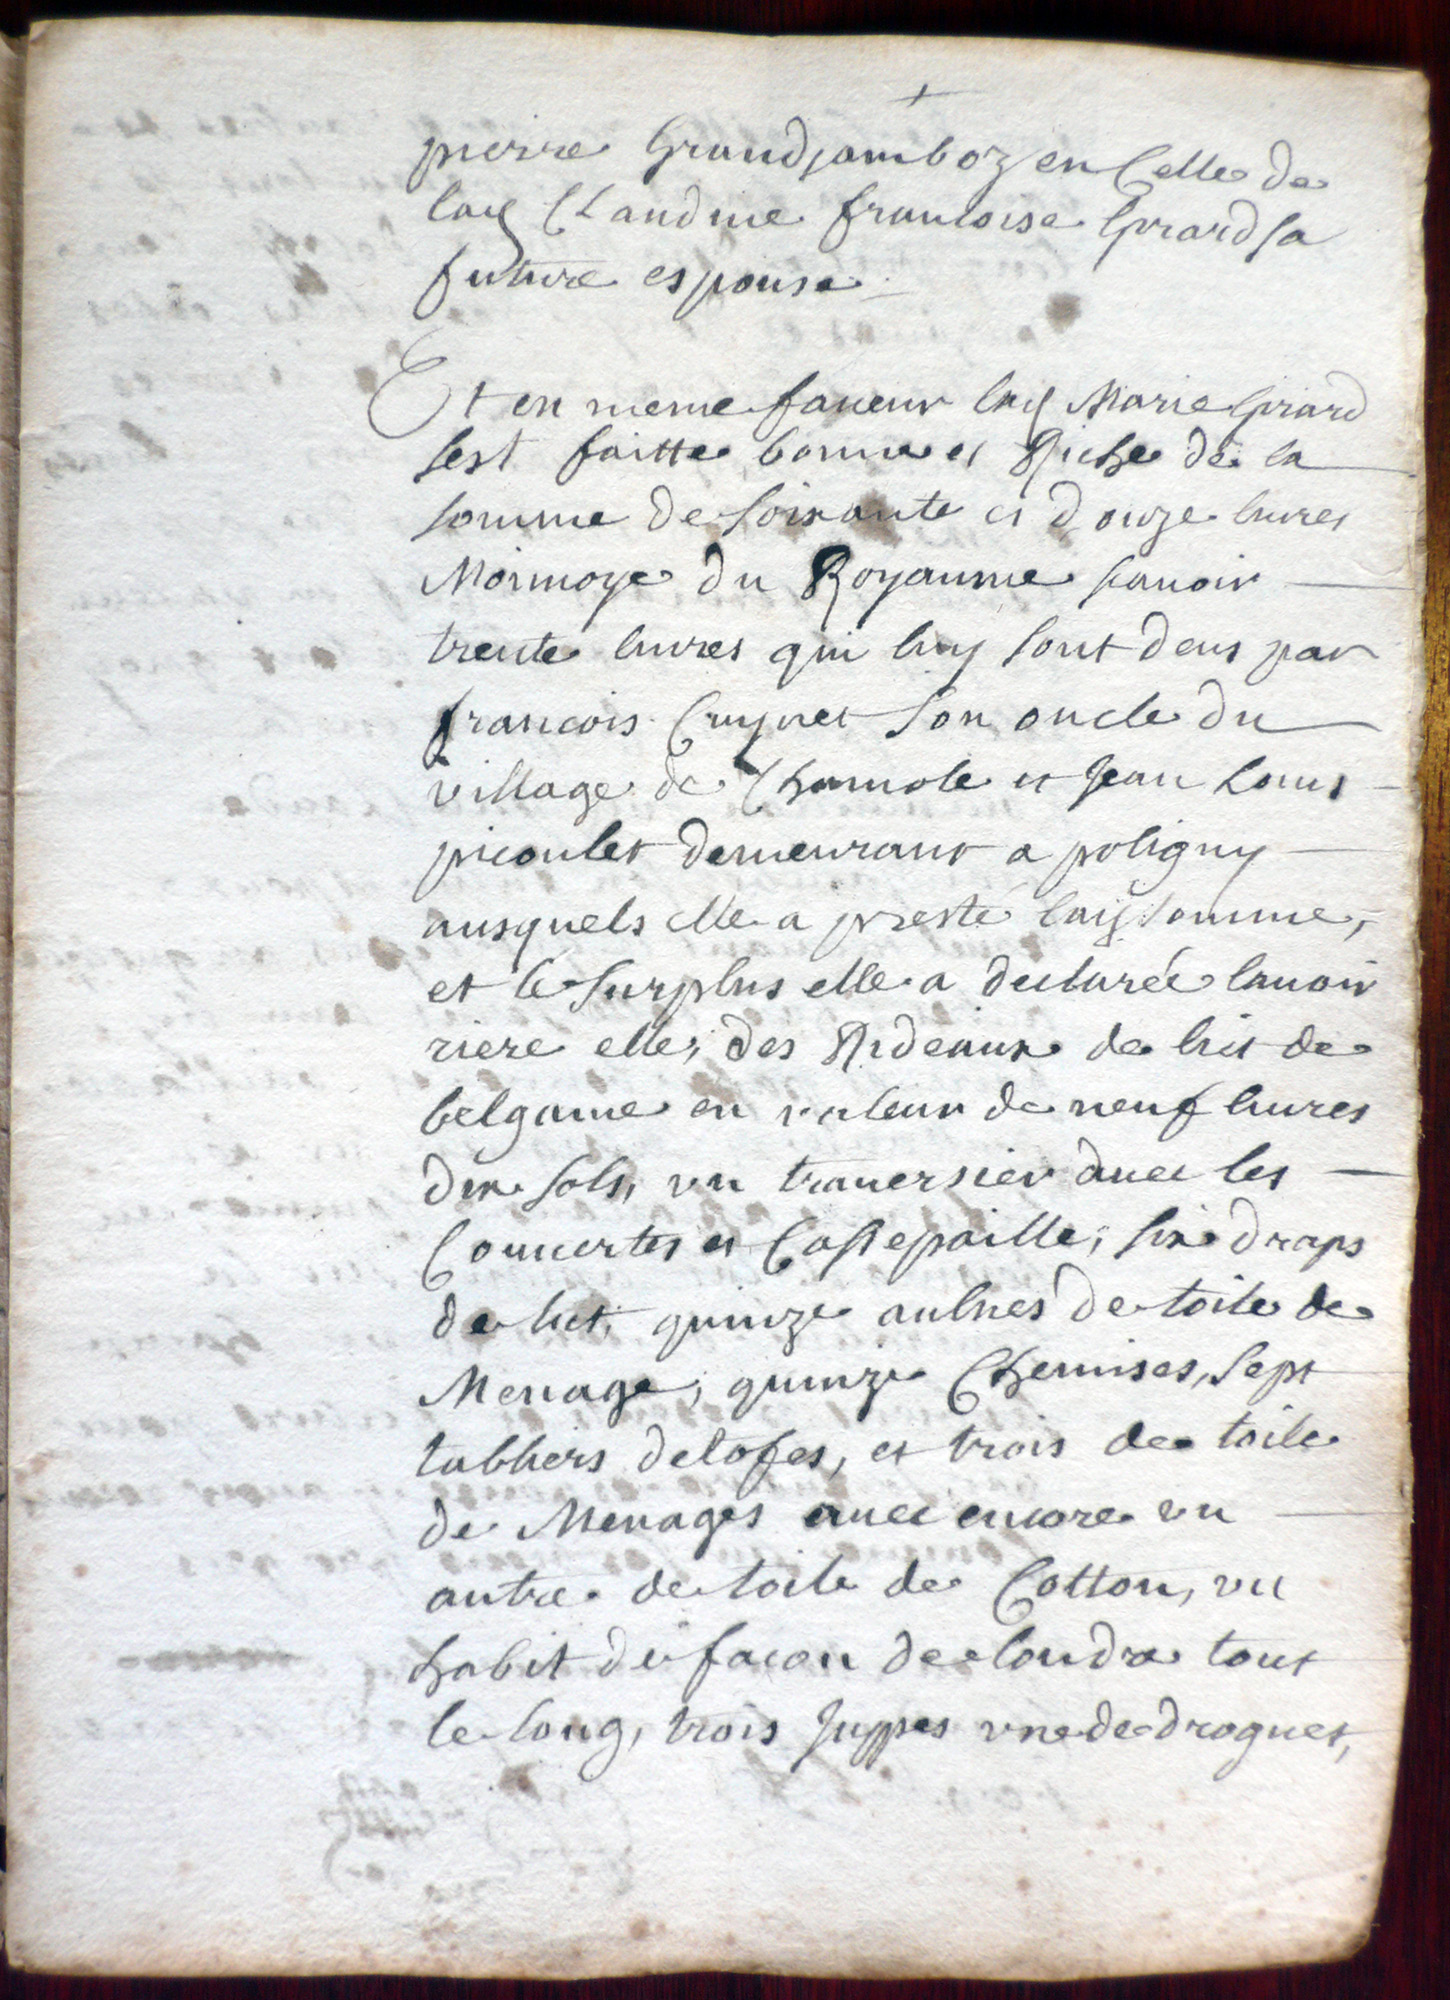 pierre Grandjamboz en Celle de
lad Claudine francoise Girard sa
future espouse
Et en meme faueur lad Marie Girard
sest faitte bonne et Riche de la
somme de soixante et douze liures
Monnoye du Royaume scauoir
trente liures qui luy sont deus par
francois Cuynet son oncle du
village de Chamole et Jean Louis
picoulet demeurant a poligny
ausquels elle a presté lad somme,
et le surplus elle a declarée lauoir
riere elle, des Rideaux de lict de
belgame en valeur de neuf liures
dix sols, vn trauersier auec les
Couuertes et Cassepaille, six draps
de lict, quinze aulnes de toile de
Menage, quinze Chemises, sept
tabliers detofes, et trois de toile
de Menages auec encore vn
autre de toile de Cotton, vn
habit de facon de londre tout
le long, trois Juppes vne de droguet,